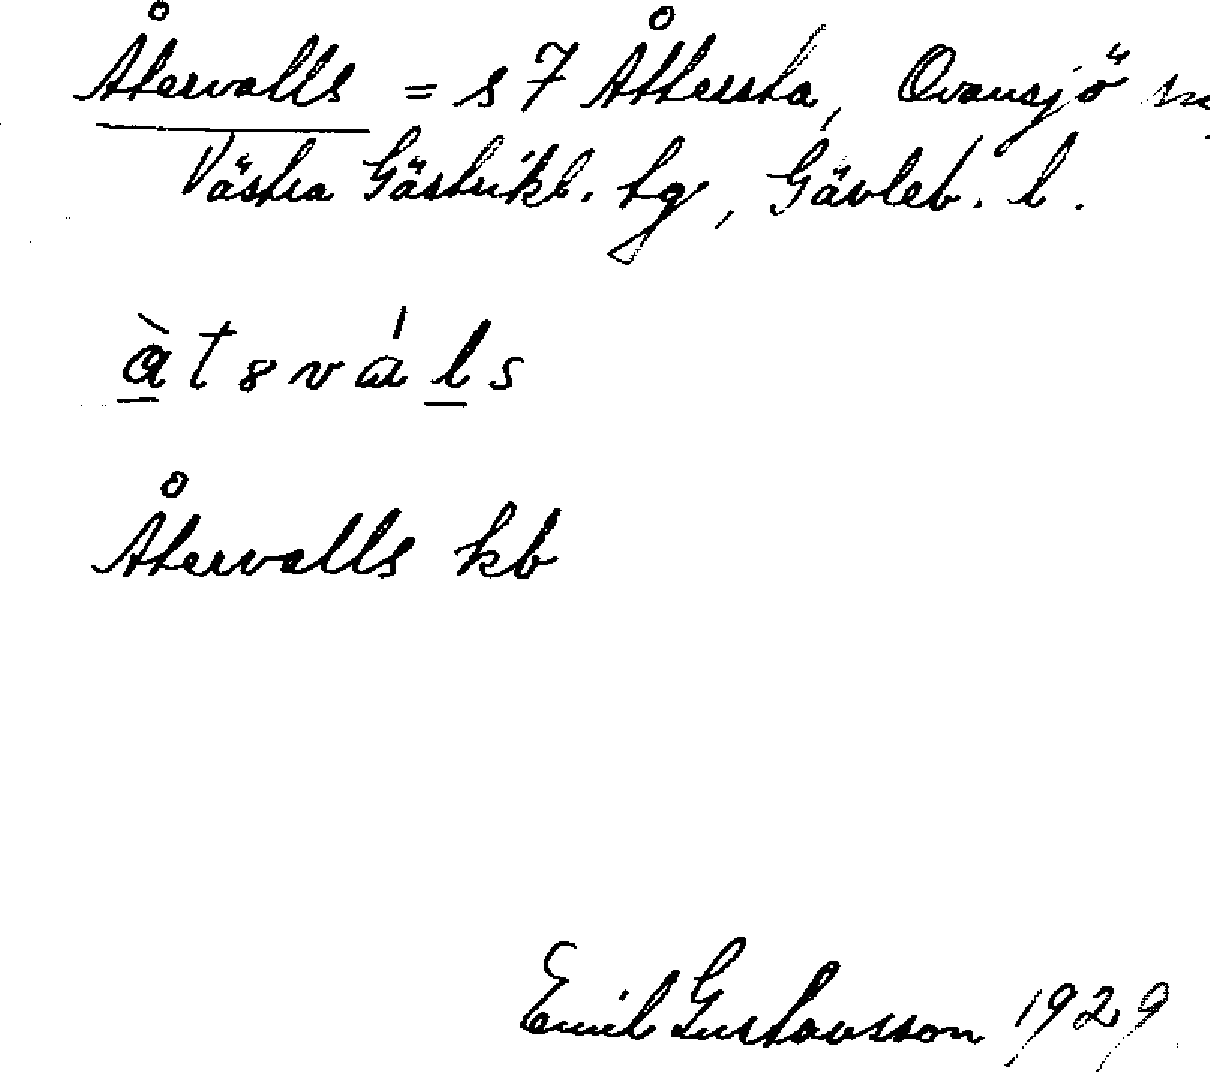 Återvalls = s 7 Åttersta, Ovansjö sn,
Västra Gästrikl. tg, Gävleb. l.
Återvalls kb
Emil Gustavsson 1929